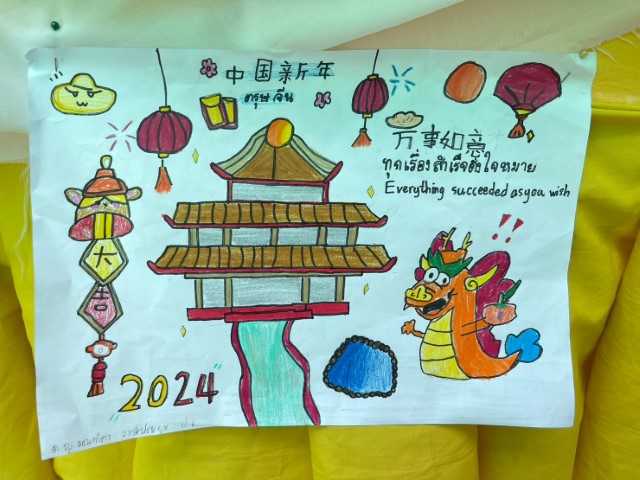 中国新年
ตรุษจีน
万事如意
ทุกเรื่องสำเร็จดั่งใจหมาย
Everything succeeded as you wish
大
吉
2024